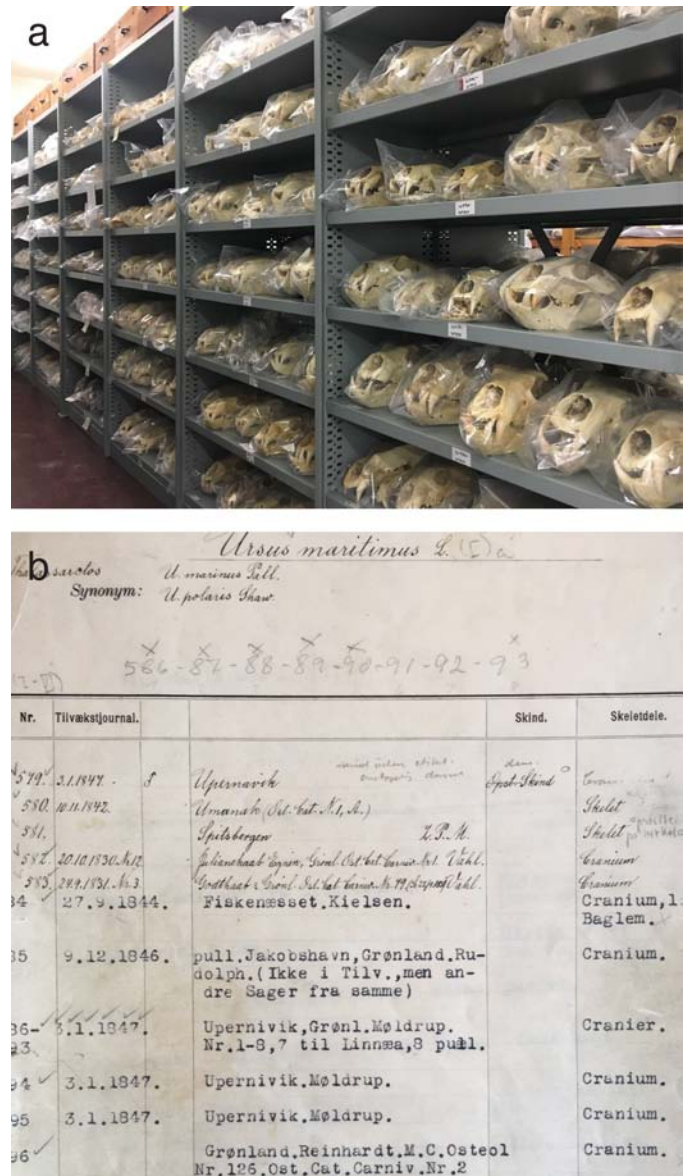 a
b
Ursus maritimus L. (I) a
U. marinus Pall.
Synonym: U. polaris Shaw.
586-87-88-89-90-91-92-93
Nr. Tilvækstjournal. Skind. Skeletdele.
579. 3.1.1847. Upernavik Opst. Skind
580. 10.11.1842. Umanak (Ost. Cat. N.1, A.) Skelet
581. Spitsbergen Z.P.M. Skelet
582. 20.10.1830. Nr.12 Julianehaab Vahl. Cranium
583. 24.9.1831. Nr.3. Godthaab Grønl. Vahl. Cranium
84 27.9.1844. Fiskenæsset.Kielsen. Cranium,1
Baglem.
85 9.12.1846. pull.Jakobshavn,Grønland.Ru- Cranium.
dolph.(Ikke i Tilv.,men an-
dre Sager fra samme)
86- 3.1.1847. Upernivik,Grønl.Møldrup. Cranier.
93 Nr.1-8,7 til Linnæa,8 pull.
94 3.1.1847. Upernivik.Møldrup. Cranium.
95 3.1.1847. Upernivik.Møldrup. Cranium.
96 Grønland.Reinhardt.M.C.Osteol Cranium.
Nr.126.Ost.Cat.Carniv.Nr.2